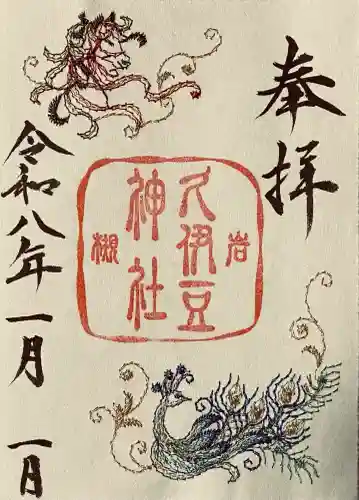 奉拝
岩槻
久伊豆
神社
令和八年一月一日